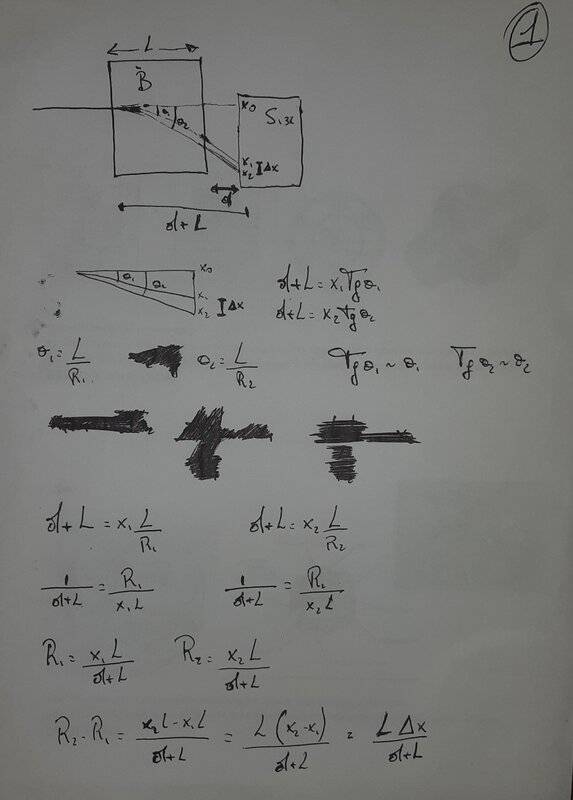 1
L
B
x₀
S₁ₓ
θ₁
θ₂
x₁
x₂ Δx
d
d+L
x₀
θ₁ θ₂
x₁
x₂ Δx
d+L = x₁ Tg θ₁
d+L = x₂ Tg θ₂
θ₁ = L/R₁ θ₂ = L/R₂ Tg θ₁ ~ θ₁ Tg θ₂ ~ θ₂
d+L = x₁ L/R₁ d+L = x₂ L/R₂
1/(d+L) = R₁/(x₁L) 1/(d+L) = R₂/(x₂L)
R₁ = x₁L/(d+L) R₂ = x₂L/(d+L)
R₂ - R₁ = (x₂L - x₁L)/(d+L) = L(x₂-x₁)/(d+L) = LΔx/(d+L)